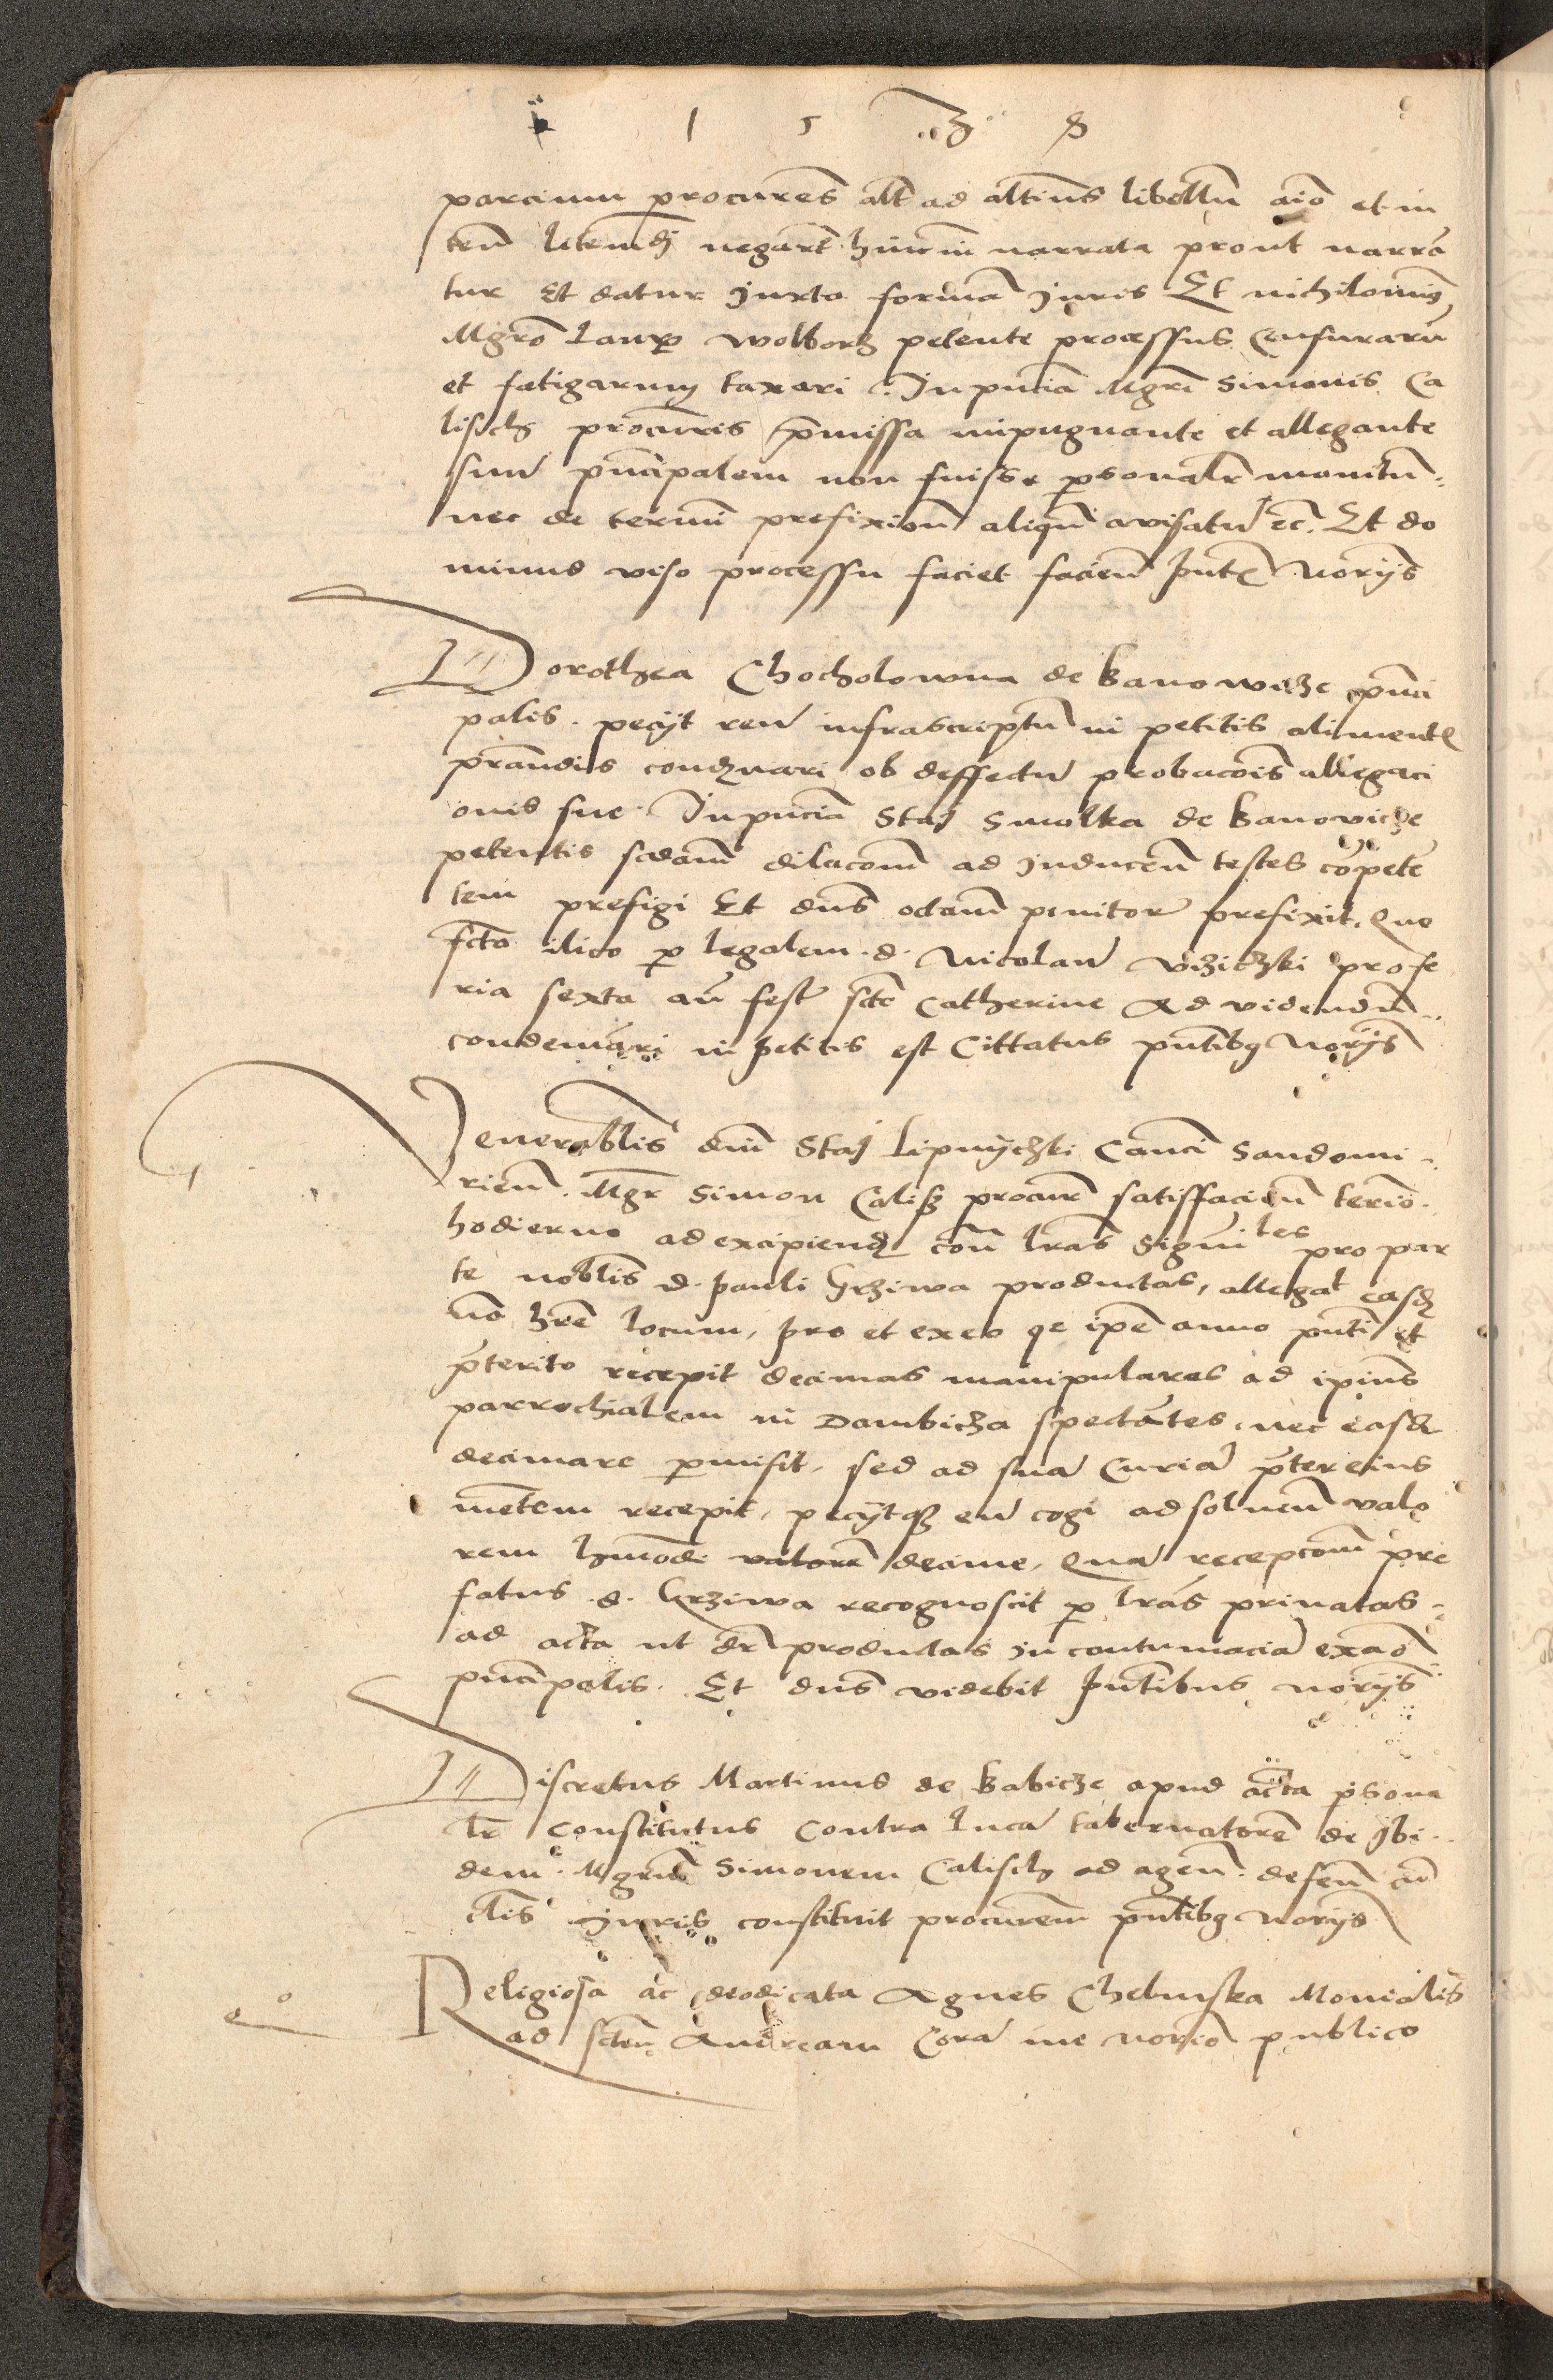 1 5 3 8
parcium procures alt ad altius libellu aio et in
ten litemdj negart huiusm narrata prout narra
tur Et datur Juxta forma Juris Et nichilomi9
Mgro Laur Wolborz petente processus Censuraru
et fatigarum taxari. In pncia Mgri Simonis Ca
lisch procuris pmissa inpugnante et allegante
suu pncipalem non fuisse psonalr monitu
nec de termi prefixion aliqm avisatu ec. Et do
minus viso processu faciet facien pntt Norijs
Dorothea Chocholowna de Banowicze pnci
palis. pecijt reu infrascriptu in petitis aliment
prandis condemnari ob deffectu probacois allegaci
onis sue. In pncia Staj Smolka de Banovicze
petentis scdam dilacom ad Inducen testes copete
tem prefigi Et dns octam penitor prefixit. Quo
fcto ilico p legalem d. Nicolau profe
ria sexta an fest scte Catherine Ad videndu
condemari in petitis est Cittatus pntib9 Norijs
Venerablis dni Staj Lipnyczki Canci Sandomi
rien. Mgr Simon Calisz procur satisfacien terio
hodierno ad excipiend con lras Sigui les pro par
te noblis d. Pauli Grziwa productas, allegat easd
no hre locum, pro et ex eo qz ipe anno pnti et
preterito recepit decimas manipulares ad ipius
parrochialem in Dambicza spectates, nec easd
decimare pmisit, sed ad sua Curia preter eius
mentem recepit, pecijtqz eu cogi ad soluen valo
rem hmodi valore decime, Qua recepcom pre
fatus d. Grziwa recognoscit p lras privatas
ad acta ut dr productas in contumacia ex ado
pncipalis. Et dns videbit pntibus norijs
Discretus Martinus de Babicze apud acta psona
lr Constitutus Contra Luca tabernatore de Ibi
dem. Mgrum Simonem Calisch ad agen. defen cu
clis Juris constituit procurem pntib9 Norijs
Religiosa ac deodicata Agnes Chelmska Monialis
ad sctm Andream Cora me Norio publico